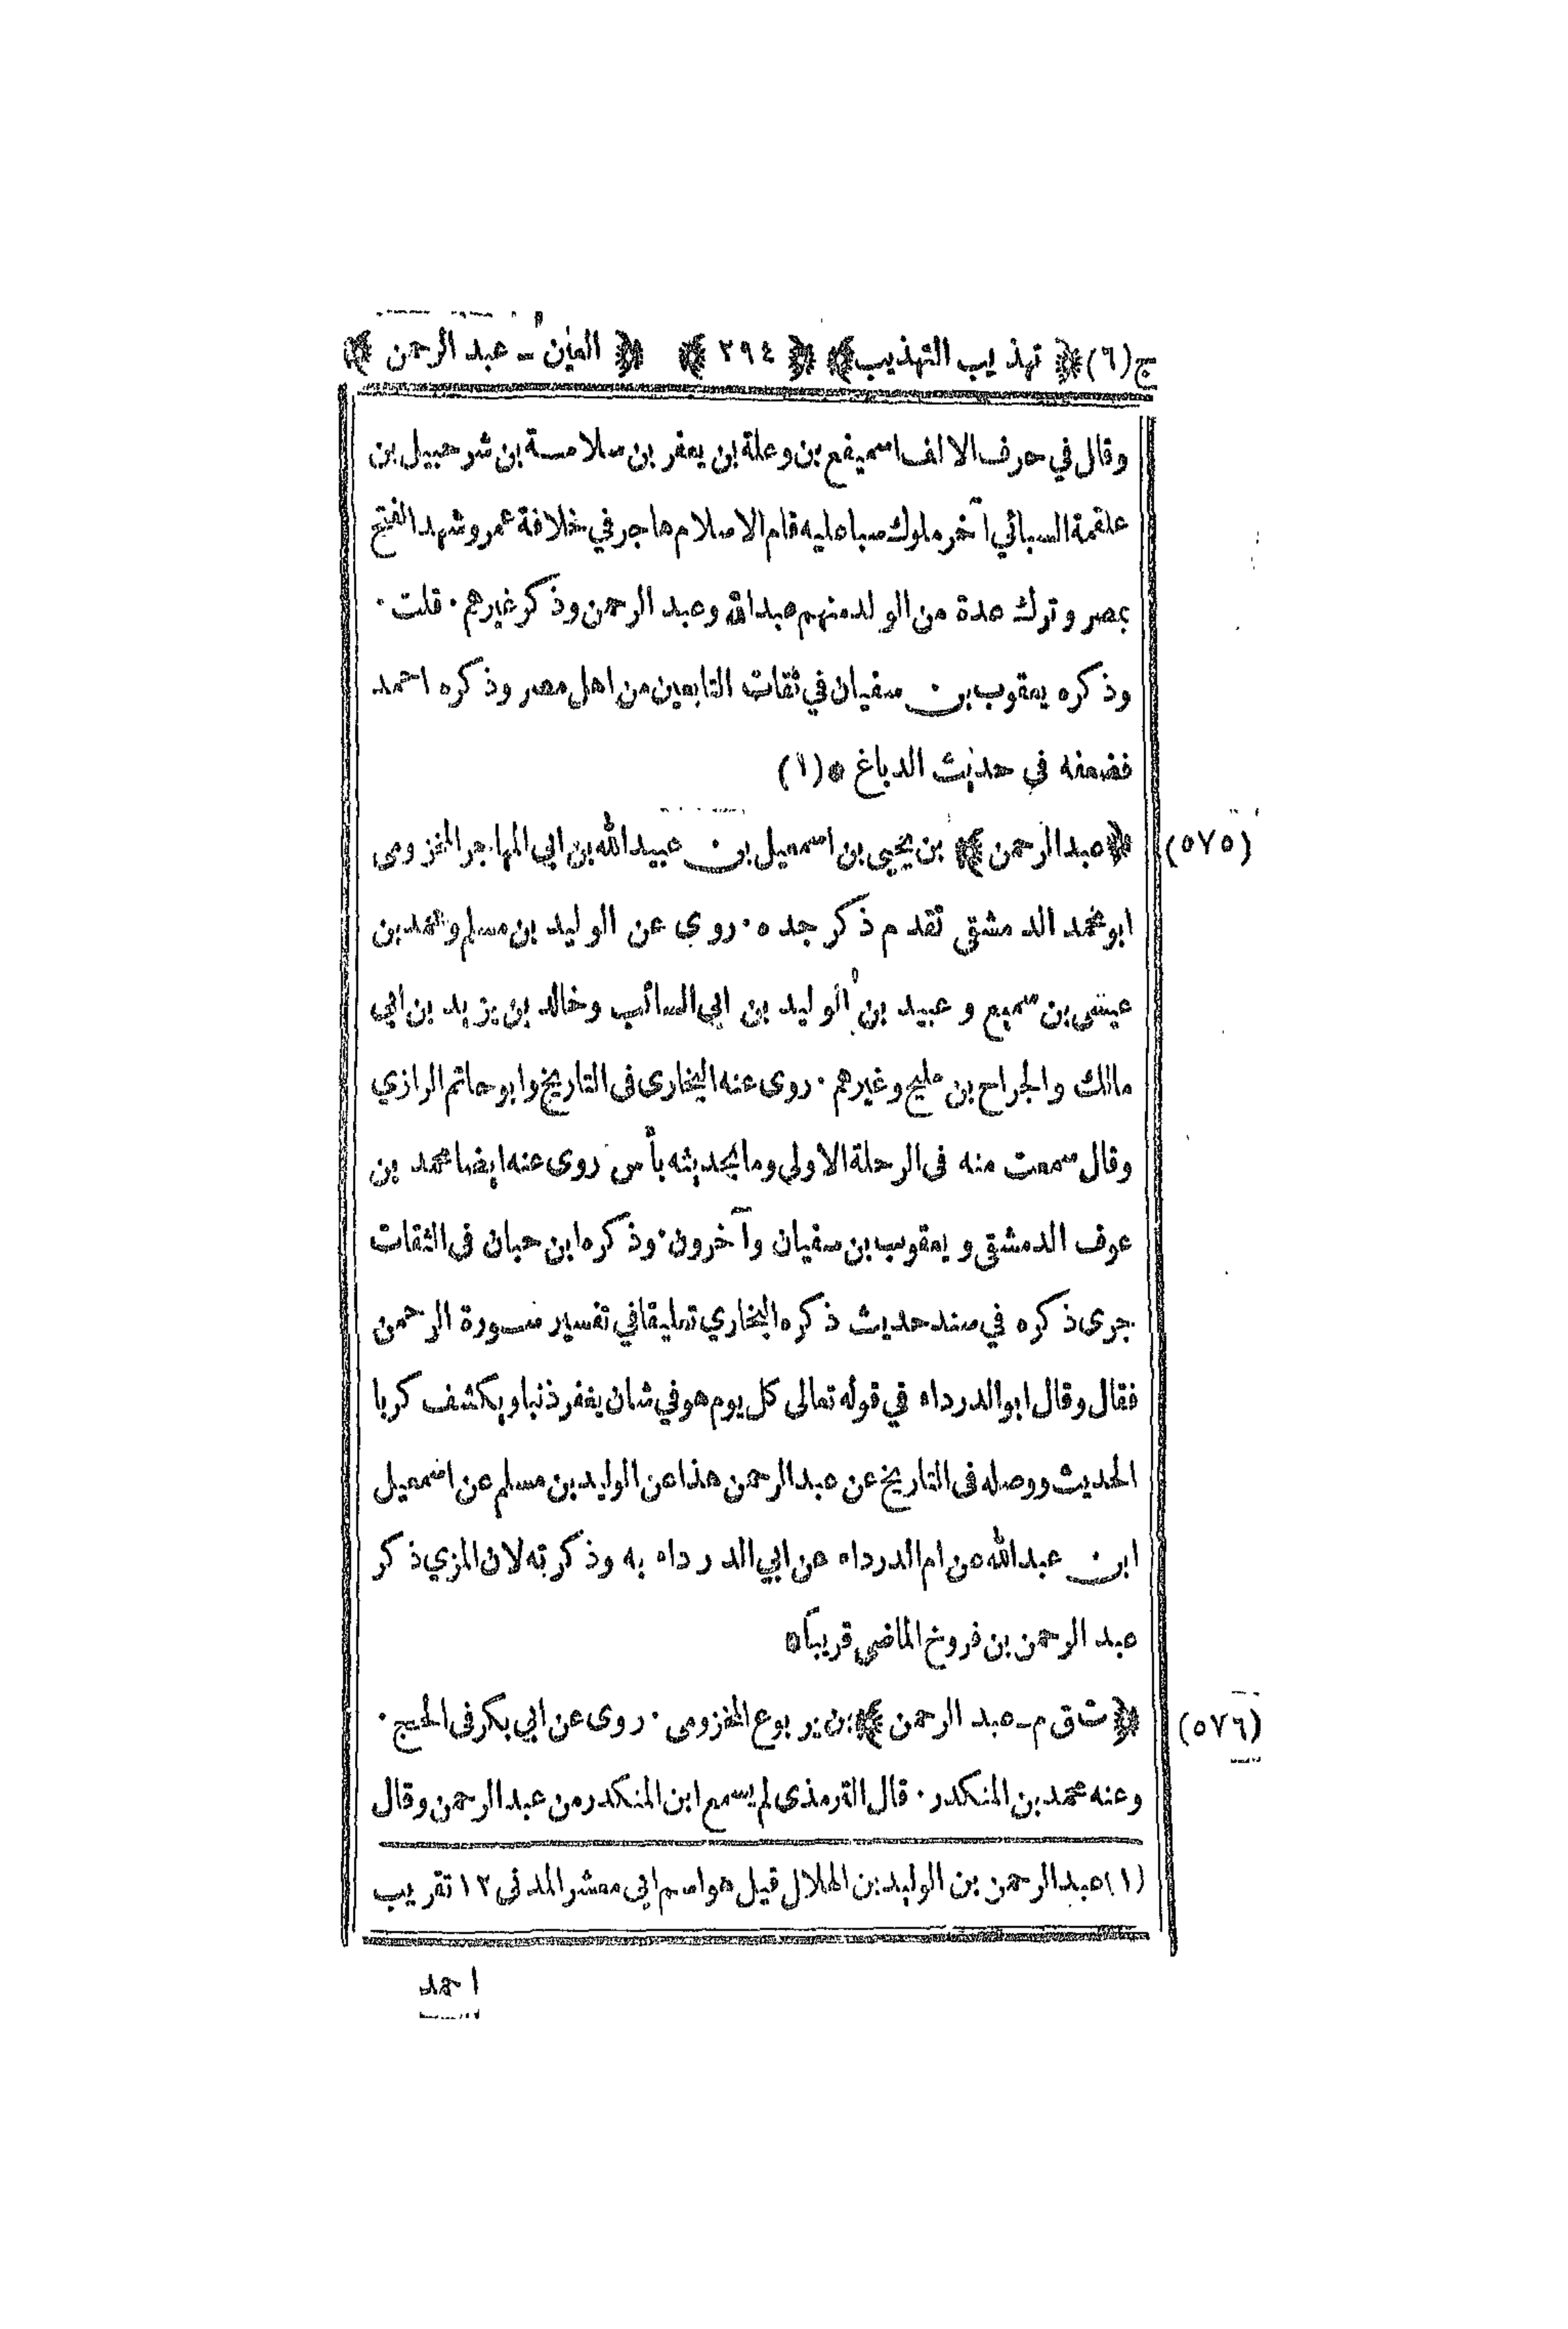 ج(٦) ﴿ تهذيب التهذيب ﴾ ﴿ ٢٩٤ ﴾ ﴿ العين - عبد الرحمن ﴾
وقال في حرف الالف اسميفع بن وعلة بن يعفر بن سلامة بن شرحبيل بن
علقمة السبائي آخر ملوك سبا عليه قام الاسلام هاجر في خلافة عمر وشهد الفتح
بمصر وترك عدة من الولد منهم عبدالله وعبد الرحمن وذكر غيرهم · قلت ·
وذكره يعقوب بن سفيان في ثقات التابعين من اهل مصر وذكره احمد
فضعفه في حديث الدباغ * (١)
(٥٧٥) ﴿ عبدالرحمن ﴾ بن يحيى بن اسمعيل بن عبيدالله بن ابي المهاجر المخزومى
ابو محمد الدمشقى تقدم ذكر جده · روى عن الوليد بن مسلم ومحمد بن
عيسى بن سميع وعبيد بن الوليد بن ابي السائب وخالد بن يزيد بن ابي
مالك والجراح بن مليح وغيرهم · روى عنه البخارى فى التاريخ وابو حاتم الرازي
وقال سمعت منه فى الرحلة الاولى وما بحديثه بأس روى عنه ايضا محمد بن
عوف الدمشقى ويعقوب بن سفيان وآخرون · وذكره ابن حبان فى الثقات
جرى ذكره في سند حديث ذكره البخاري تعليقا في تفسير سورة الرحمن
فقال وقال ابوالدرداء في قوله تعالى كل يوم هو في شان يغفر ذنبا ويكشف كربا
الحديث ووصله فى التاريخ عن عبدالرحمن هذا عن الوليد بن مسلم عن اسمعيل
ابن عبدالله عن ام الدرداء عن ابي الدرداء به وذكرته لان المزي ذكر
عبد الرحمن بن فروخ الماضى قريباً *
(٥٧٦) ﴿ ت ق م - عبد الرحمن ﴾ بن يربوع المخزومى · روى عن ابي بكر فى الحج ·
وعنه محمد بن المنكدر · قال الترمذى لم يسمع ابن المنكدر من عبدالرحمن وقال
(١) عبدالرحمن بن الوليد بن الهلال قيل هو اسم ابي معشر المدنى ١٢ تقريب
احمد